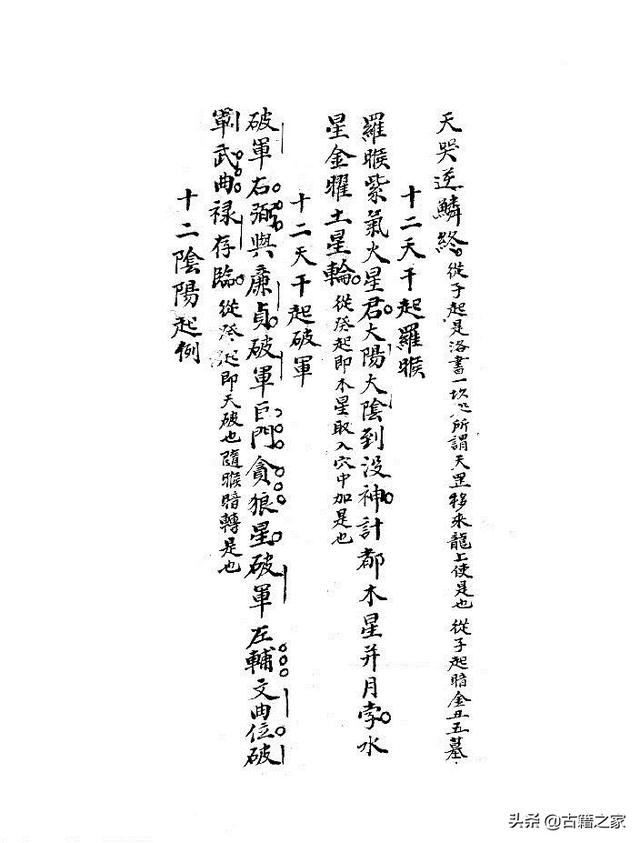 天哭逆鱗終從子起是洛書一坎也所謂天罡移來龍上使是也從子起暗金丑五墓
十二天干起羅睺
羅睺紫氣火星君太陽太陰到没神計都木星并月孛水
星金曜土星輪從癸起即木星取入穴中加是也
十二天干起破軍
破軍右弼與廉貞破軍巨門貪狼星破軍左輔文曲位破
軍武曲禄存臨從癸起即天破也隨睺暗轉是也
十二陰陽起例
头条 @古籍之家